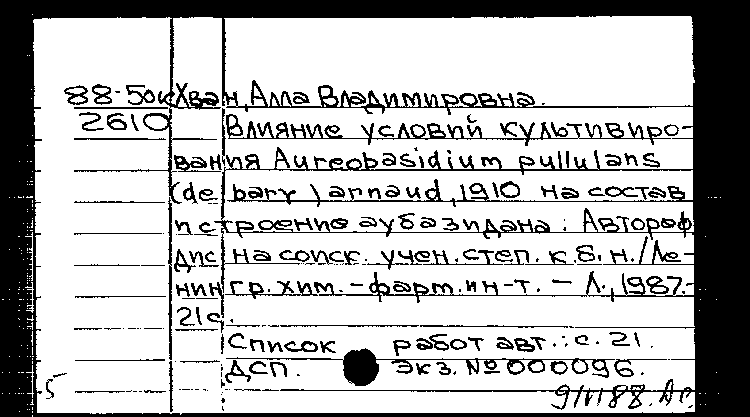 88-50к Хван, Алла Владимировна.
2610 Влияние условий культивиро-
вания Aureobasidium pullulans
(de bary) arnaud, 1910 на состав
и строение аубазидана: Автореф.
дис на соиск. учен. степ. к.б.н./Ле-
нингр. хим.-фарм. ин-т. - Л., 1987.-
21с.
Список работ авт.: с. 21.
ДСП. Экз. № 000096.
5